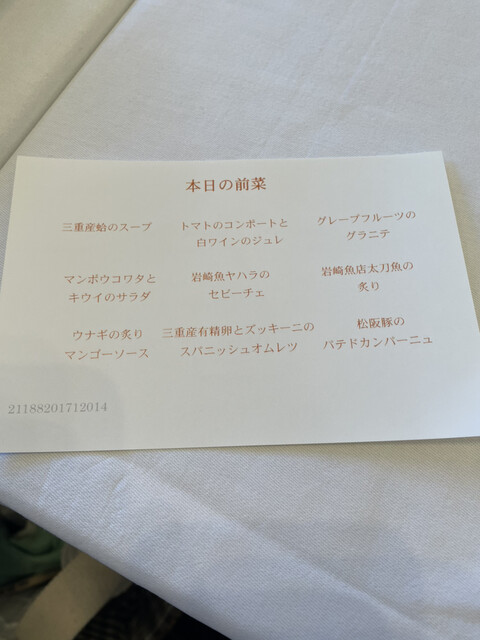 本日の前菜
三重産蛤のスープ
トマトのコンポートと
白ワインのジュレ
グレープフルーツの
グラニテ
マンボウコワタと
キウイのサラダ
岩崎魚ヤハラの
セビーチェ
岩崎魚店太刀魚の
炙り
ウナギの炙り
マンゴーソース
三重産有精卵とズッキーニの
スパニッシュオムレツ
松阪豚の
パテドカンパーニュ
21188201712014